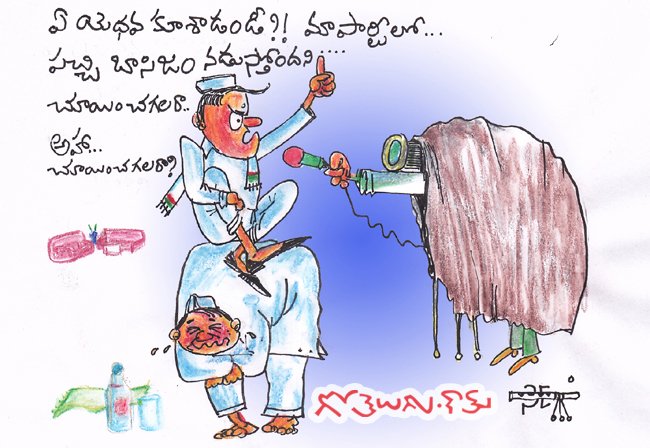 ఏ యెధవ కూశాడండీ?! మాపార్టీలో...
పచ్చి బాసిజం నడుస్తోందని....
చూయించగలరా..
అహా...
చూయించగలరా?
గోతెలుగు.కామ్